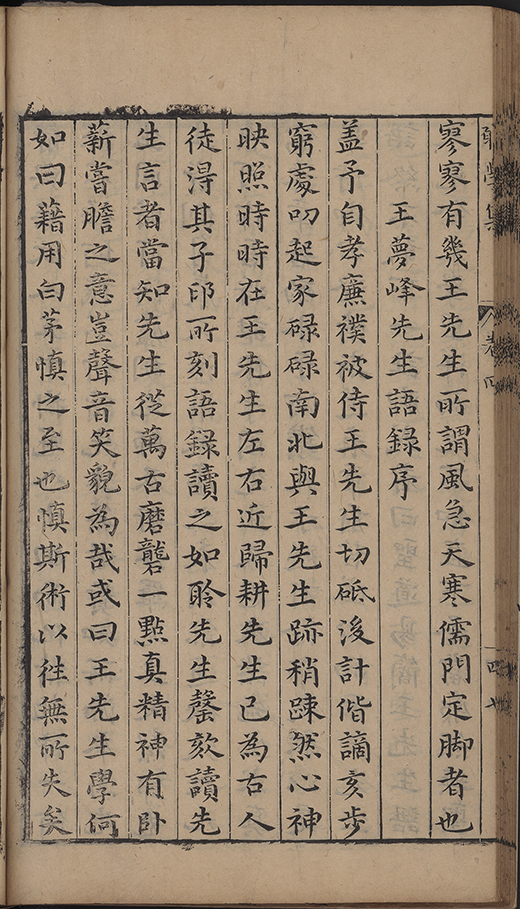 願學集 卷四 四七
寥寥有幾王先生所謂風急天寒儒門定脚者也
王夢峰先生語録序
盖予自孝廉襆被侍王先生切砥後計偕謫亥步
窮處叨起家碌碌南北與王先生跡稍踈然心神
映照時時在王先生左右近歸耕先生已為古人
徒淂其子印所刻語録讀之如聆先生罄欬讀先
生言者當知先生從萬古磨礲一點真精神有卧
薪嘗膽之意豈聲音笑貌為哉或曰王先生學何
如曰藉用白茅慎之至也慎斯術以往無所失矣